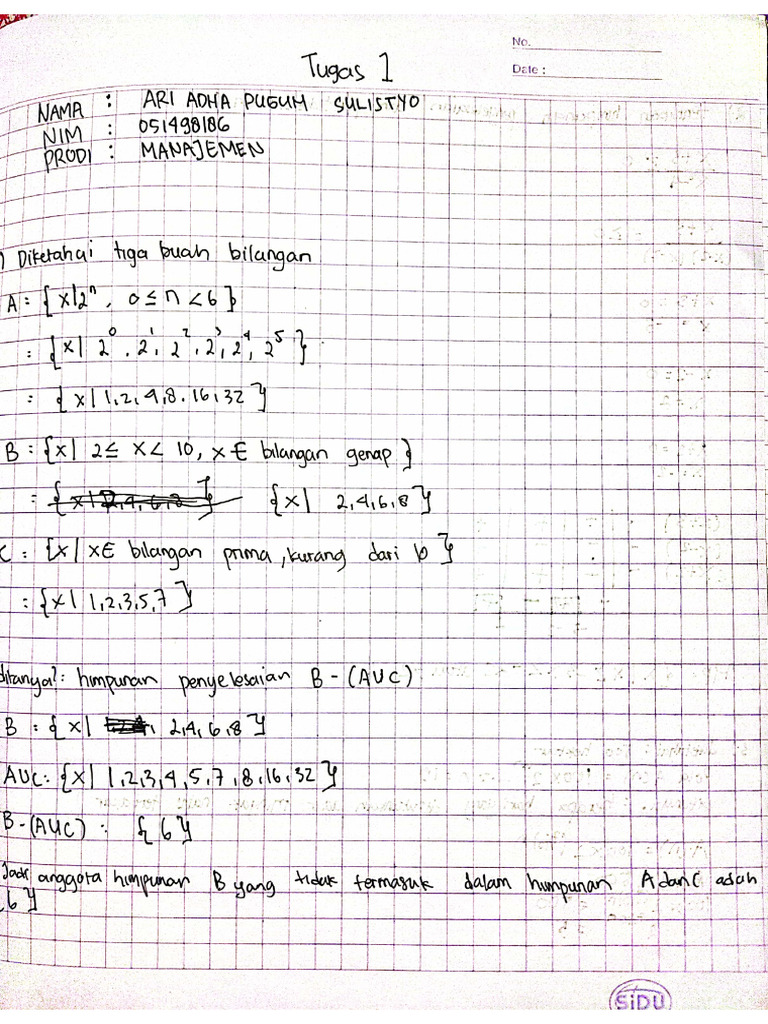 No.
Date :
Tugas 1
NAMA : ARI ADHA PUGUH SULISTYO
NIM : 051498186
PRODI : MANAJEMEN
) Diketahai tiga buah bilangan
A : { x | 2ⁿ, 0 ≤ n < 6 }
: { x | 2⁰, 2¹, 2², 2³, 2⁴, 2⁵ }
: { x | 1, 2, 4, 8. 16, 32 }
B : { x | 2 ≤ x < 10, x ∈ bilangan genap }
: { x | 2, 4, 6, 8 }
C : { x | x ∈ bilangan prima, kurang dari 10 }
: { x | 1, 2, 3, 5, 7 }
ditanya?: himpunan penyelesaian B - (AUC)
B : { x | 2, 4, 6, 8 }
AUC : { x | 1, 2, 3, 4, 5, 7, 8, 16, 32 }
B - (AUC) : { 6 }
Jadi anggota himpunan B yang tidak termasuk dalam humpunan A dan C adlah
{ 6 }
SiDU